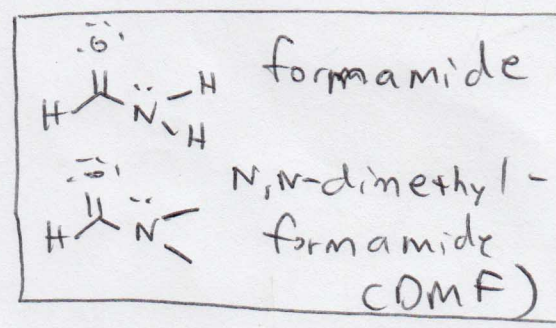 :Ö:
H N H
H
formamide
:Ö:
H N
N,N-dimethyl-
formamide
(DMF)